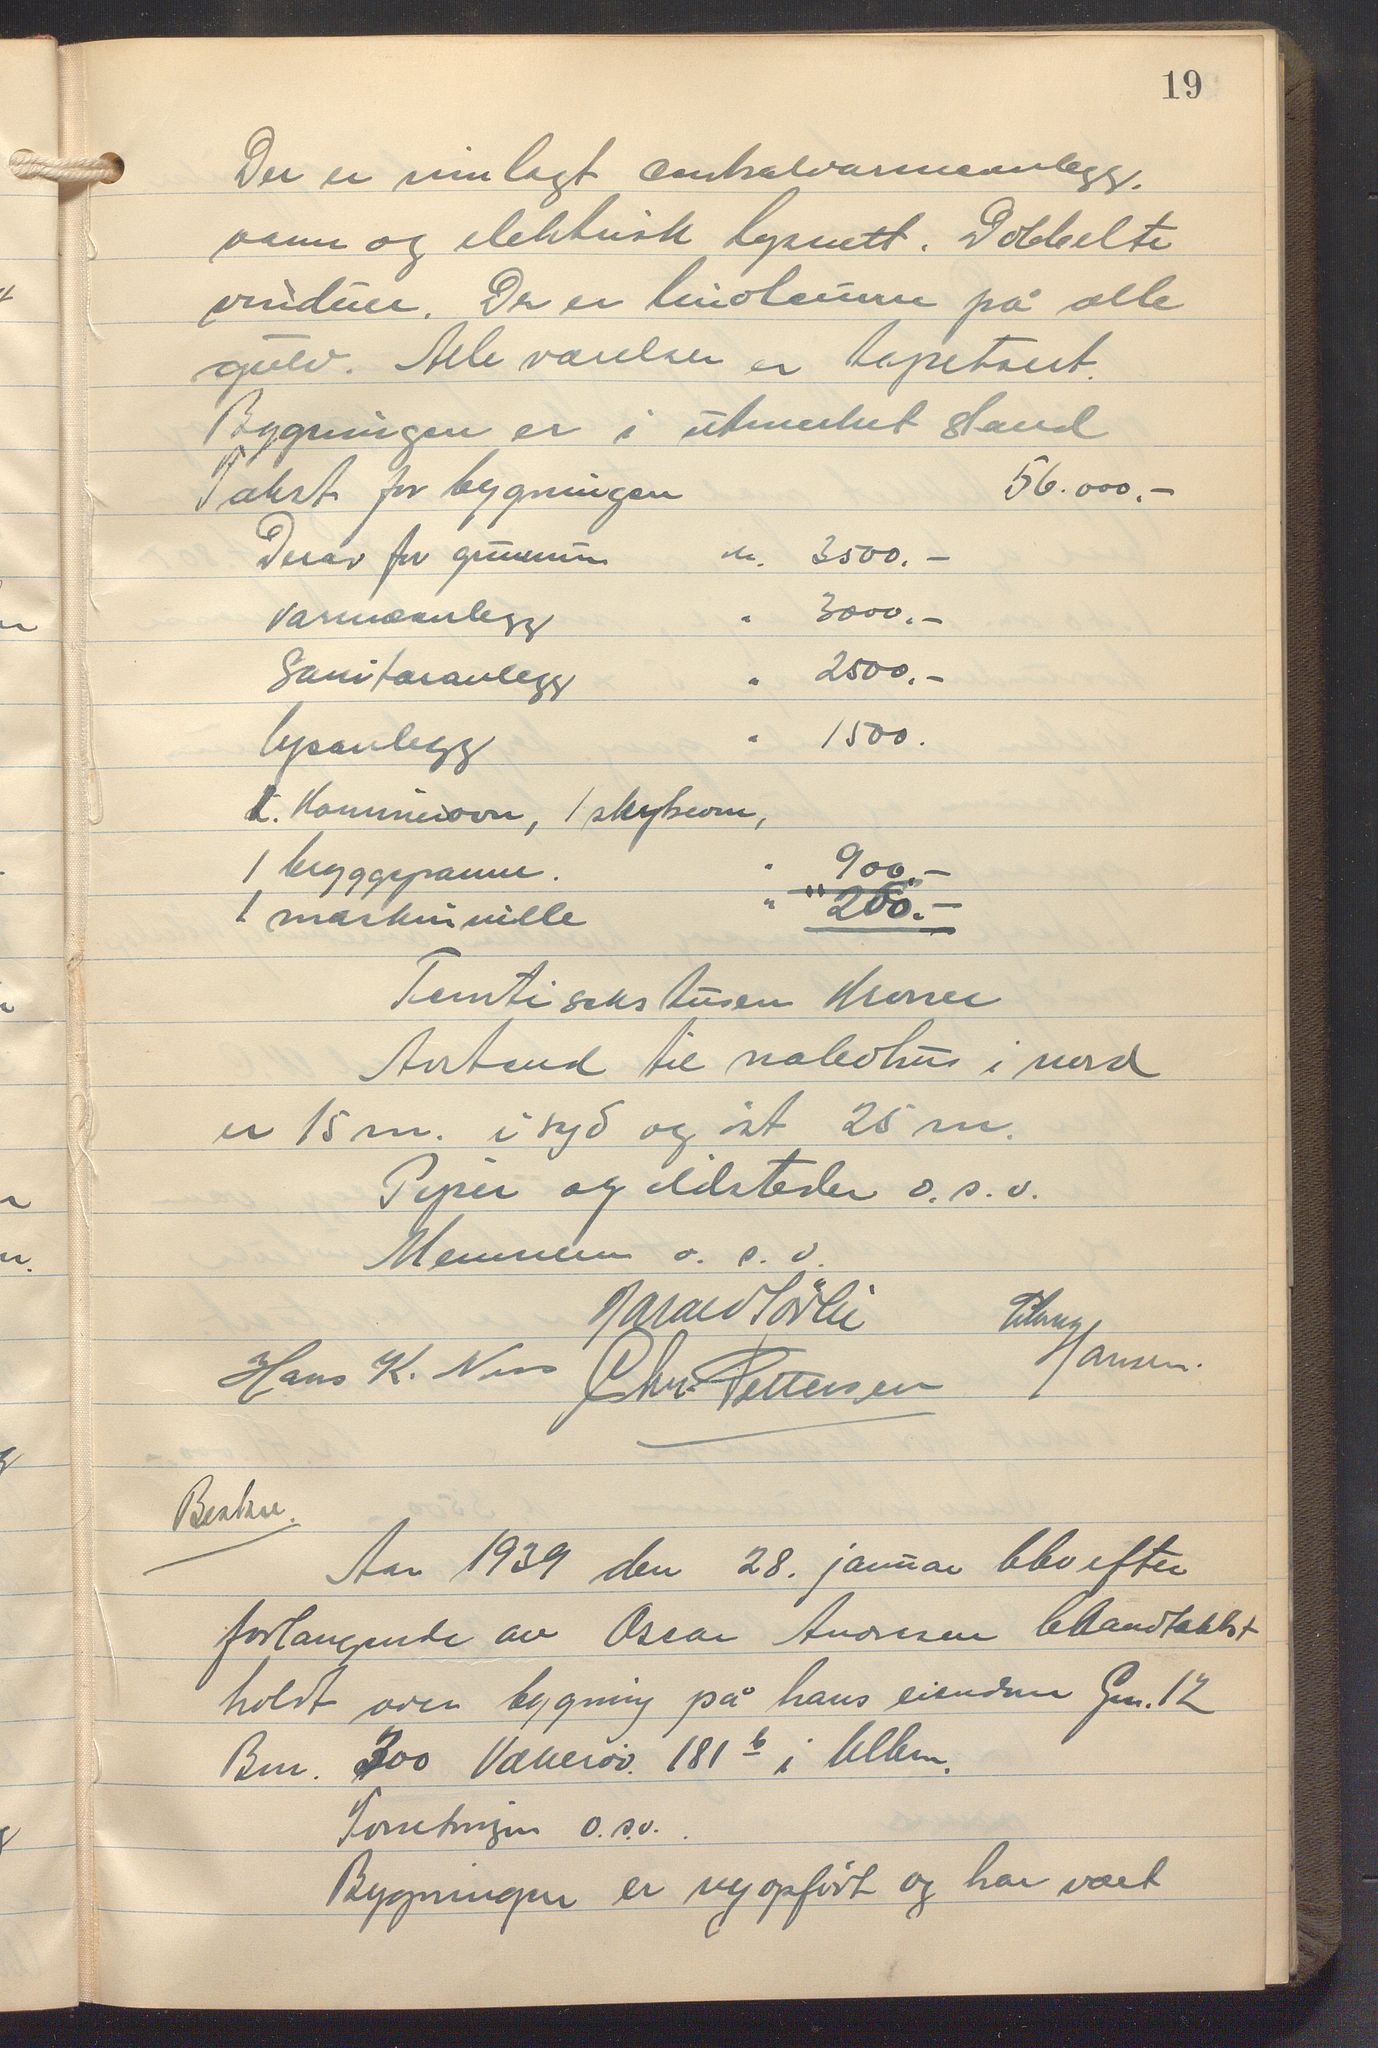 19
Der er innlagt centralvarmeanlegg.
vann og elektrisk lysnett. Dobbelte
vinduer. Der er linoleum på alle
gulv. Alle værelser er tapetsert.
Bygningen er i utmerket stand
Takst for bygningen 56.000.-
Derav for grunnmur kr. 3500.-
varmeanlegg " 3000.-
Sanitæranlegg " 2500.-
lysanlegg " 1500.
1. Kaminovn, 1
1 bryggepanne. " 900.-
1 maskinrulle " 200.-
Femti seks tusen Kroner
Avstand til nabohus i nord
er 15 m. i syd og øst 25 m.
Piper og ildsteder o.s.v.
Mennene o.s.v.
Harald Hansen.
Hans K. Chr. Pettersen
Beskre.
Aar 1939 den 28. januar blev efter
forlangende av Oscar Andresen
holdt over bygning på hans eiendom Gnr. 12
Bnr. 300 Vækerøv. 181 b i Ullern.
Forretningen o.s.v.
Bygningen er nyopført og har vært